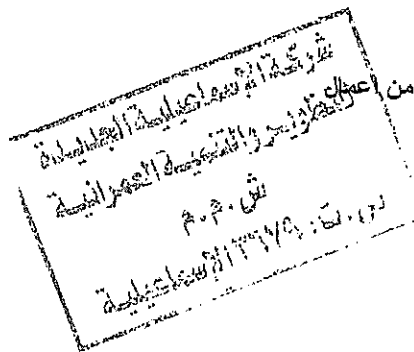 من اعمال
شركة الإسماعيلية الجديدة
للتطوير والتنمية العمرانية
ش.م.م
س.ت: ٣٦٧٩ الإسماعيلية